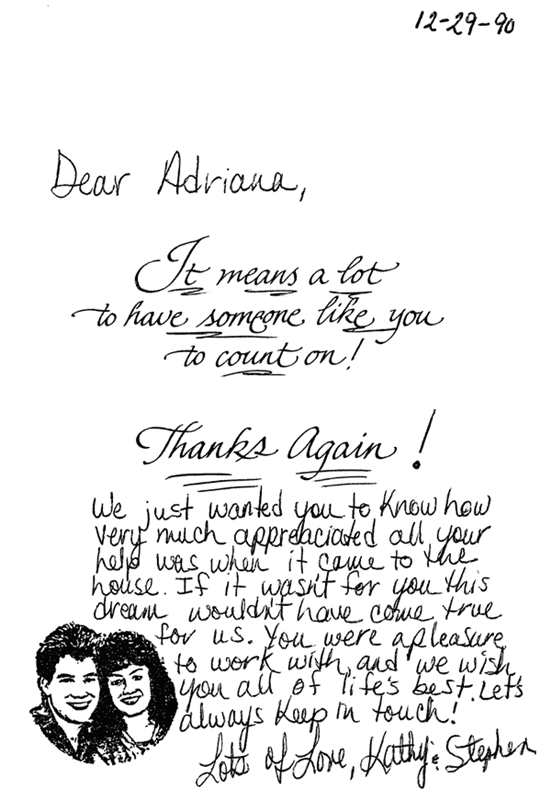 12-29-90
Dear Adriana,
It means a lot
to have someone like you
to count on!
Thanks Again!
We just wanted you to know how
very much appreaciated all your
help was when it came to the
house. If it wasn't for you this
dream wouldn't have come true
for us. You were a pleasure
to work with, and we wish
you all of life's best. Let's
always keep in touch!
Lots of Love, Kathy & Stephen